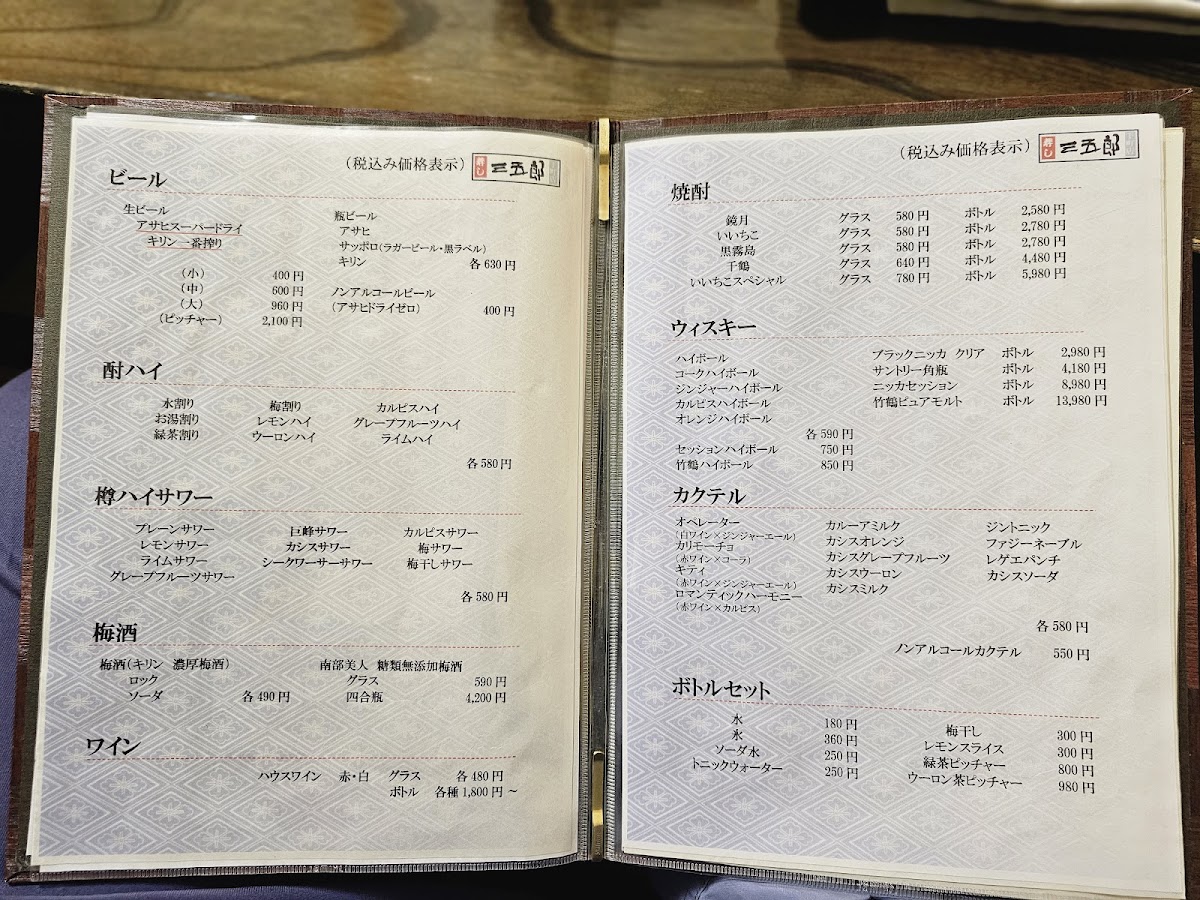 (税込み価格表示) 寿し 三五郎
ビール
生ビール
アサヒスーパードライ
キリン一番搾り
(小) 400円
(中) 600円
(大) 960円
(ピッチャー) 2,100円
瓶ビール
アサヒ
サッポロ(ラガービール・黒ラベル)
キリン 各630円
ノンアルコールビール
(アサヒドライゼロ) 400円
酎ハイ
水割り 梅割り カルピスハイ
お湯割り レモンハイ グレープフルーツハイ
緑茶割り ウーロンハイ ライムハイ
各580円
樽ハイサワー
プレーンサワー 巨峰サワー カルピスサワー
レモンサワー カシスサワー 梅サワー
ライムサワー シークワーサーサワー 梅干しサワー
グレープフルーツサワー
各580円
梅酒
梅酒(キリン 濃厚梅酒)
ロック
ソーダ 各490円
南部美人 糖類無添加梅酒
グラス 590円
四合瓶 4,200円
ワイン
ハウスワイン 赤・白 グラス 各480円
ボトル 各種1,800円~
(税込み価格表示) 寿し 三五郎
焼酎
鏡月 グラス 580円 ボトル 2,580円
いいちこ グラス 580円 ボトル 2,780円
黒霧島 グラス 580円 ボトル 2,780円
千鶴 グラス 640円 ボトル 4,480円
いいちこスペシャル グラス 780円 ボトル 5,980円
ウィスキー
ハイボール
コークハイボール
ジンジャーハイボール
カルピスハイボール
オレンジハイボール
各590円
セッションハイボール 750円
竹鶴ハイボール 850円
ブラックニッカ クリア ボトル 2,980円
サントリー角瓶 ボトル 4,180円
ニッカセッション ボトル 8,980円
竹鶴ピュアモルト ボトル 13,980円
カクテル
オペレーター
(白ワイン×ジンジャーエール)
カリモーチョ
(赤ワイン×コーラ)
キティ
(赤ワイン×ジンジャーエール)
ロマンティックハーモニー
(赤ワイン×カルピス)
カルーアミルク
カシスオレンジ
カシスグレープフルーツ
カシスウーロン
カシスミルク
ジントニック
ファジーネーブル
レゲエパンチ
カシスソーダ
各580円
ノンアルコールカクテル 550円
ボトルセット
水 180円
氷 360円
ソーダ水 250円
トニックウォーター 250円
梅干し 300円
レモンスライス 300円
緑茶ピッチャー 800円
ウーロン茶ピッチャー 980円